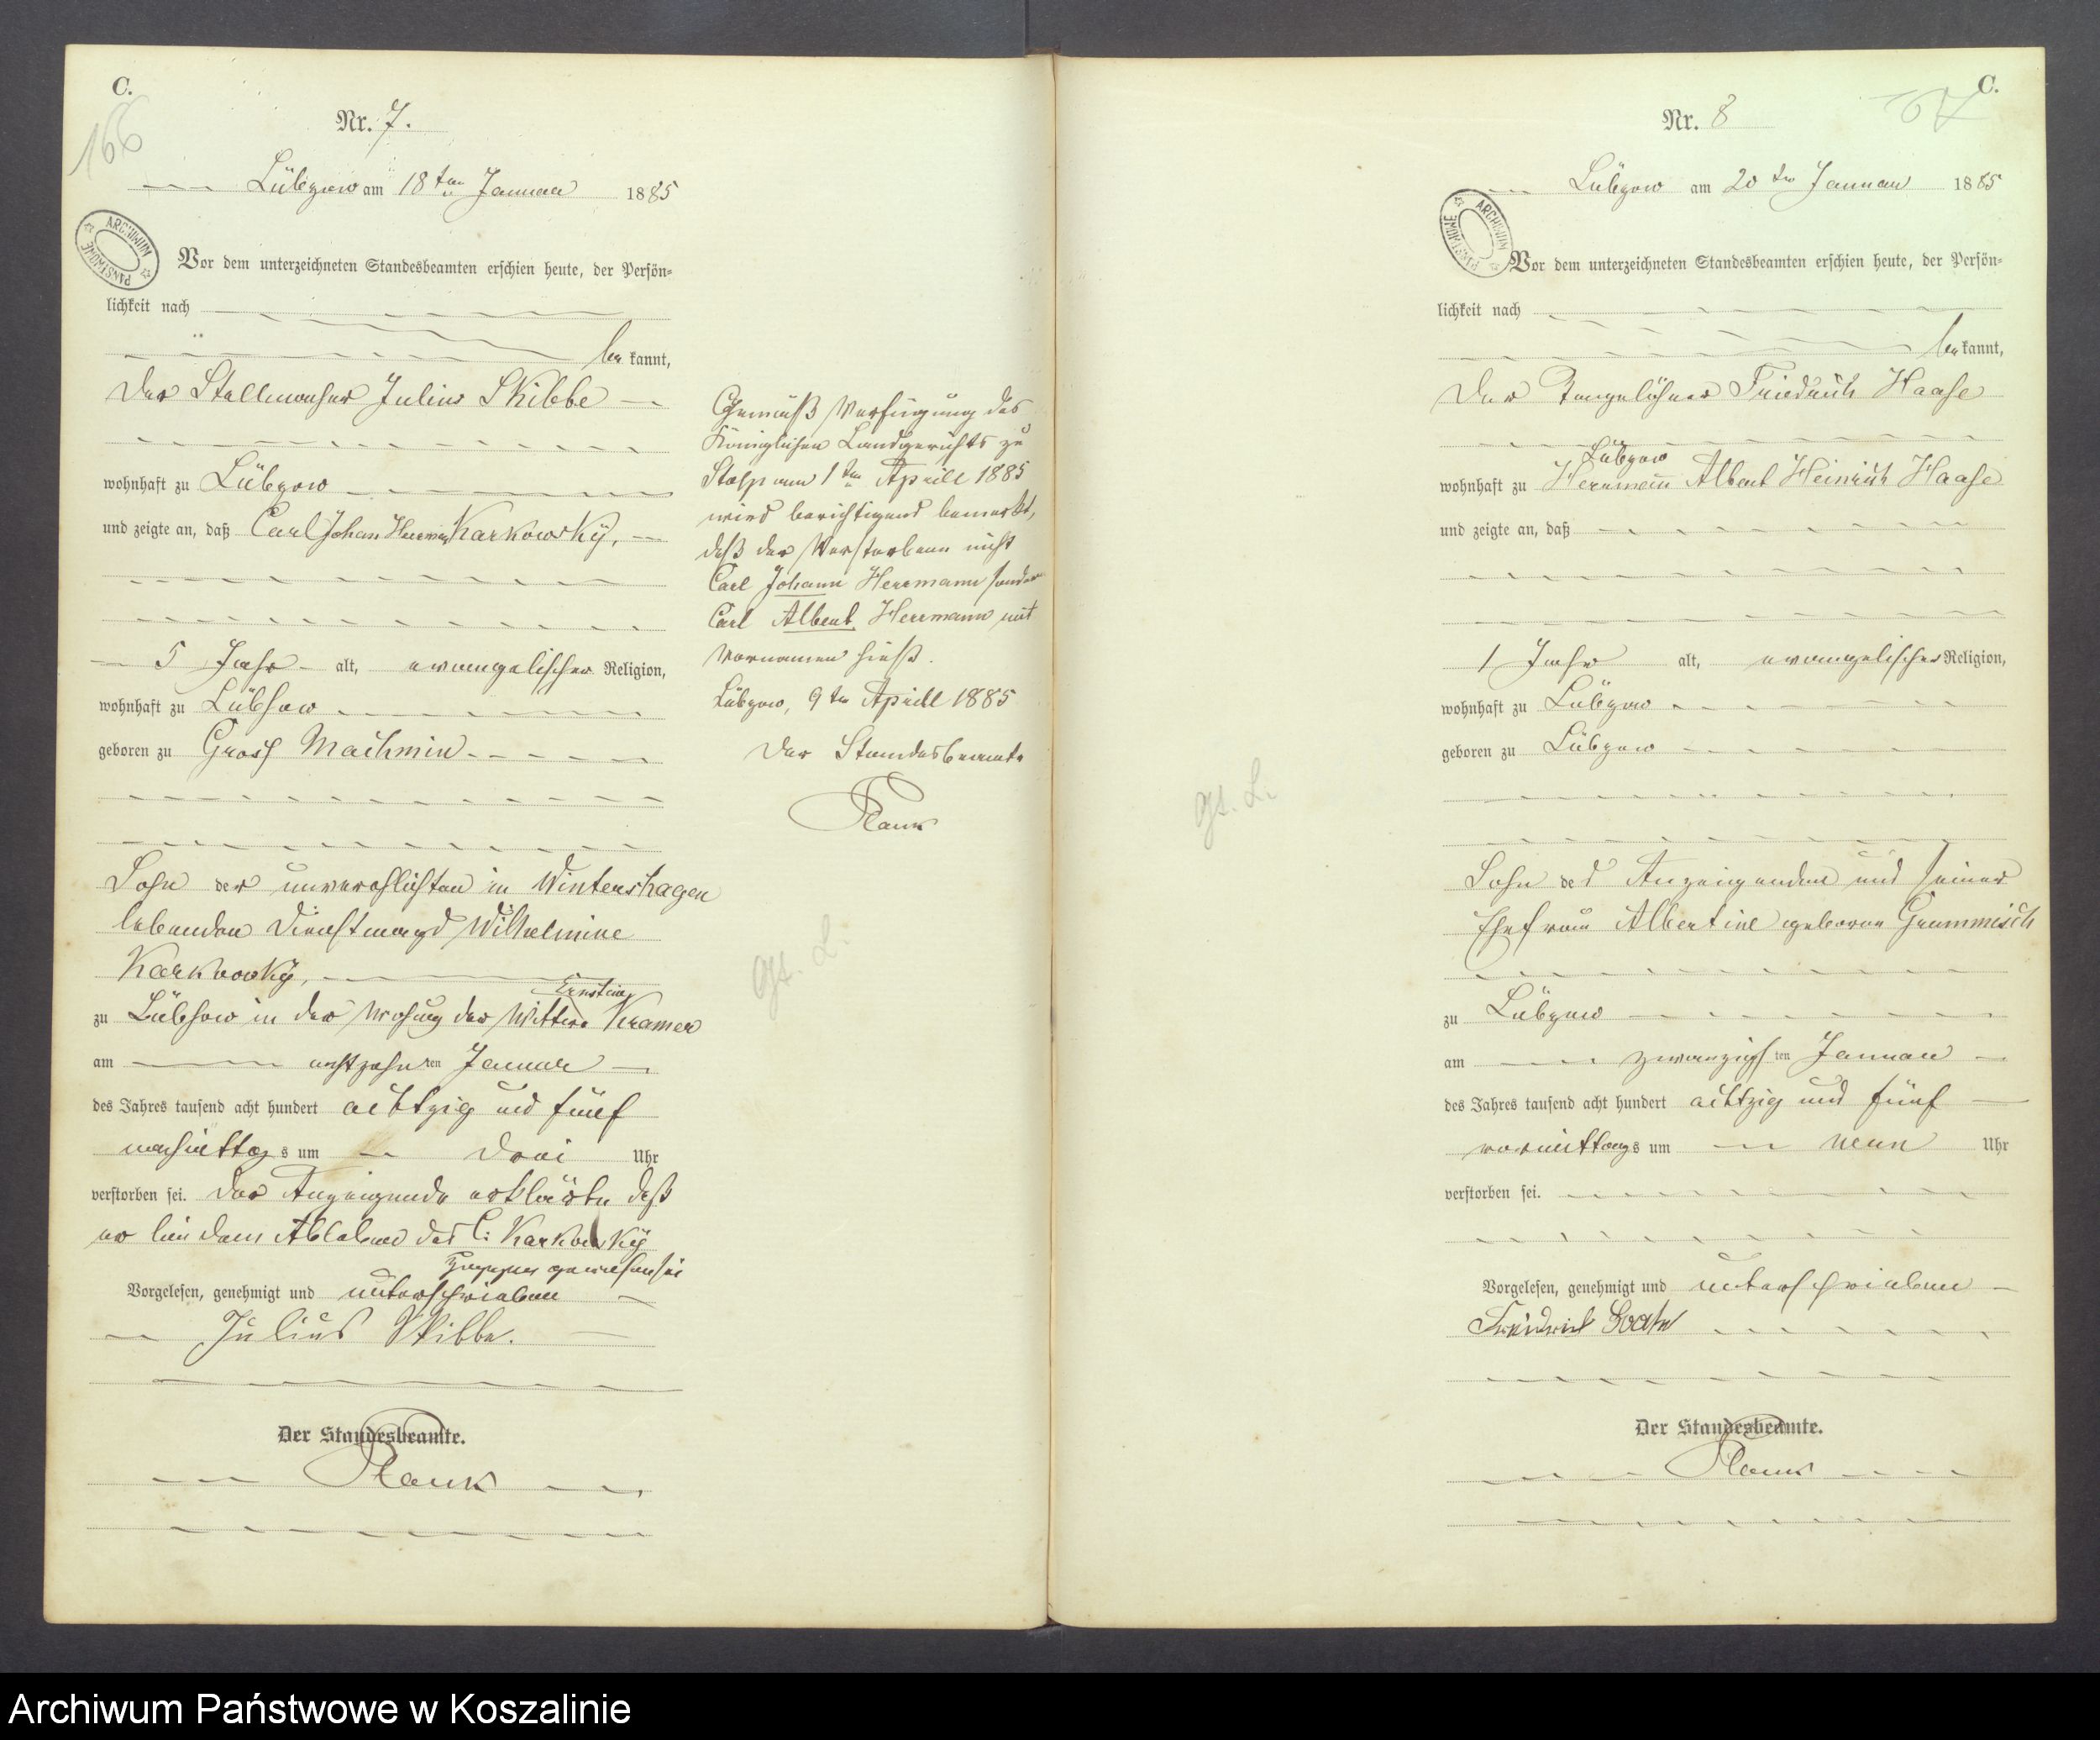 C.
166
Nr. 7.
Lübzow am 18ten Januar 1885
ARCHIWUM PAŃSTWOWE
Vor dem unterzeichneten Standesbeamten erschien heute, der Persön-
lichkeit nach
be kannt,
der Stellmacher Julius Skibbe
wohnhaft zu Lübzow
und zeigte an, daß Carl Johan Herrman Karkowsky,
5 Jahr alt, evangelischer Religion,
wohnhaft zu Lübsow
geboren zu Gross Machmin
Sohn der unverehlichten in Wintershagen
lebenden Dienstmagd Wilhelmine
Karkowsky,
Ernstine
zu Lübsow in der Wohung der Wittwe Kramer
am achtzehnten Januar
des Jahres tausend acht hundert achtzig und fünf
nachmittags um drei Uhr
verstorben sei. Der Anzeigende erklärte daß
er bei dem Ableben des C: Karkowsky
zugegen gewesen sei
Vorgelesen, genehmigt und unterschrieben
Julius Skibbe.
Der Standesbeamte.
Planck
Gemäß Verfügung des
Königlichen Landgerichts zu
Stolp vom 1ten Aprill 1885
wird berichtigend bemerkt,
daß der Verstorbene nicht
Carl Johann Herrmann sondern
Carl Albert Herrmann mit
Vornamen hieß.
Lübzow, 9ten Aprill 1885
Der Standesbeamte
Planck
gt. L.
gt. L.
C.
Nr. 8
Lübzow am 20ten Januar 1885
ARCHIWUM PAŃSTWOWE
Vor dem unterzeichneten Standesbeamten erschien heute, der Persön-
lichkeit nach
be kannt,
der Tagelöhner Friedrich Haase
Lübzow
wohnhaft zu Herrmann Albert Heinrich Haase
und zeigte an, daß
1 Jahr alt, evangelischer Religion,
wohnhaft zu Lübzow
geboren zu Lübzow
Sohn des Anzeigenden und seiner
Ehefrau Albertine geborne Grammisch
zu Lübzow
am zwanzigsten Januar
des Jahres tausend acht hundert achtzig und fünf
vormittags um neun Uhr
verstorben sei.
Vorgelesen, genehmigt und unterschrieben
Friedrich
Der Standesbeamte.
Planck
Archiwum Państwowe w Koszalinie